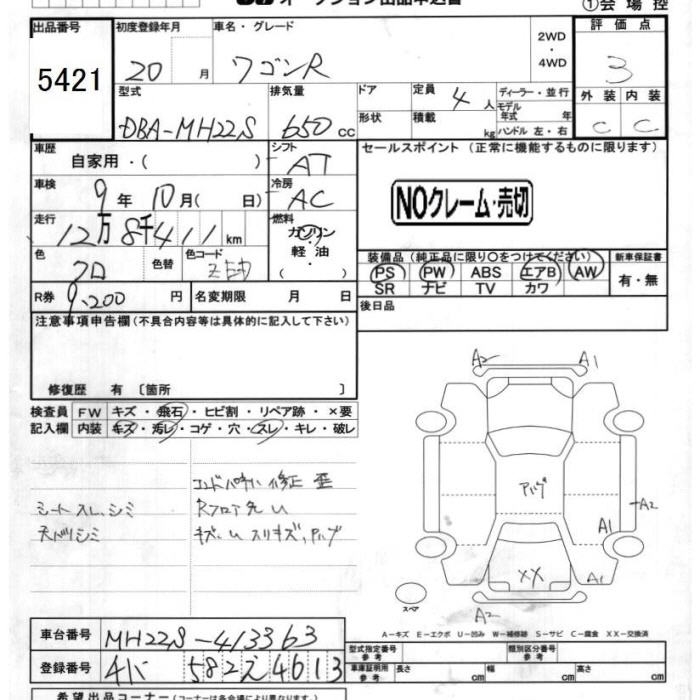 ①会場控
出品番号 初度登録年月 車名・グレード 評価点
5421 20 月 ワゴンR 2WD・4WD 3
型式 排気量 ドア 定員 4人 ディーラー・並行 外装 内装
DBA-MH22S 650cc 形状 積載 kg モデル年式 年 ハンドル 左・右 C C
車歴 自家用・( ) シフト AT セールスポイント (正常に機能するものに限ります)
車検 9年10月( 日) 冷房 AC
NOクレーム・売切
走行 12万8千411km 燃料 ガソリン・軽油・( )
色 クロ 色替 色コード ZJ3 装備品 (純正品に限り○をつけてください) 新車保証書
PS PW ABS エアB AW 有・無
SR ナビ TV カワ
R券 9,200円 名変期限 月 日 後日品
注意事項申告欄(不具合内容等は具体的に記入して下さい)
修復歴 有 [箇所 ]
検査員 FW キズ・飛石・ヒビ割・リペア跡・×要
記入欄 内装 キズ・汚レ・コゲ・穴・スレ・キレ・破レ
修正 歪
シートスレ、シミ
天バリシミ
A2 A1
アハゲ
A2
A1
XX A1
スペア
A2
A-キズ E-エクボ U-凹み W-補修跡 S-サビ C-腐食 XX-交換済
車台番号 MH22S-413363
型式指定番号 参考 類別区分番号 参考
登録番号 582 4613
車庫証明用 参考 長さ cm 幅 cm 高さ cm
希望出品コーナー(コーナーは各会場により異なります。)